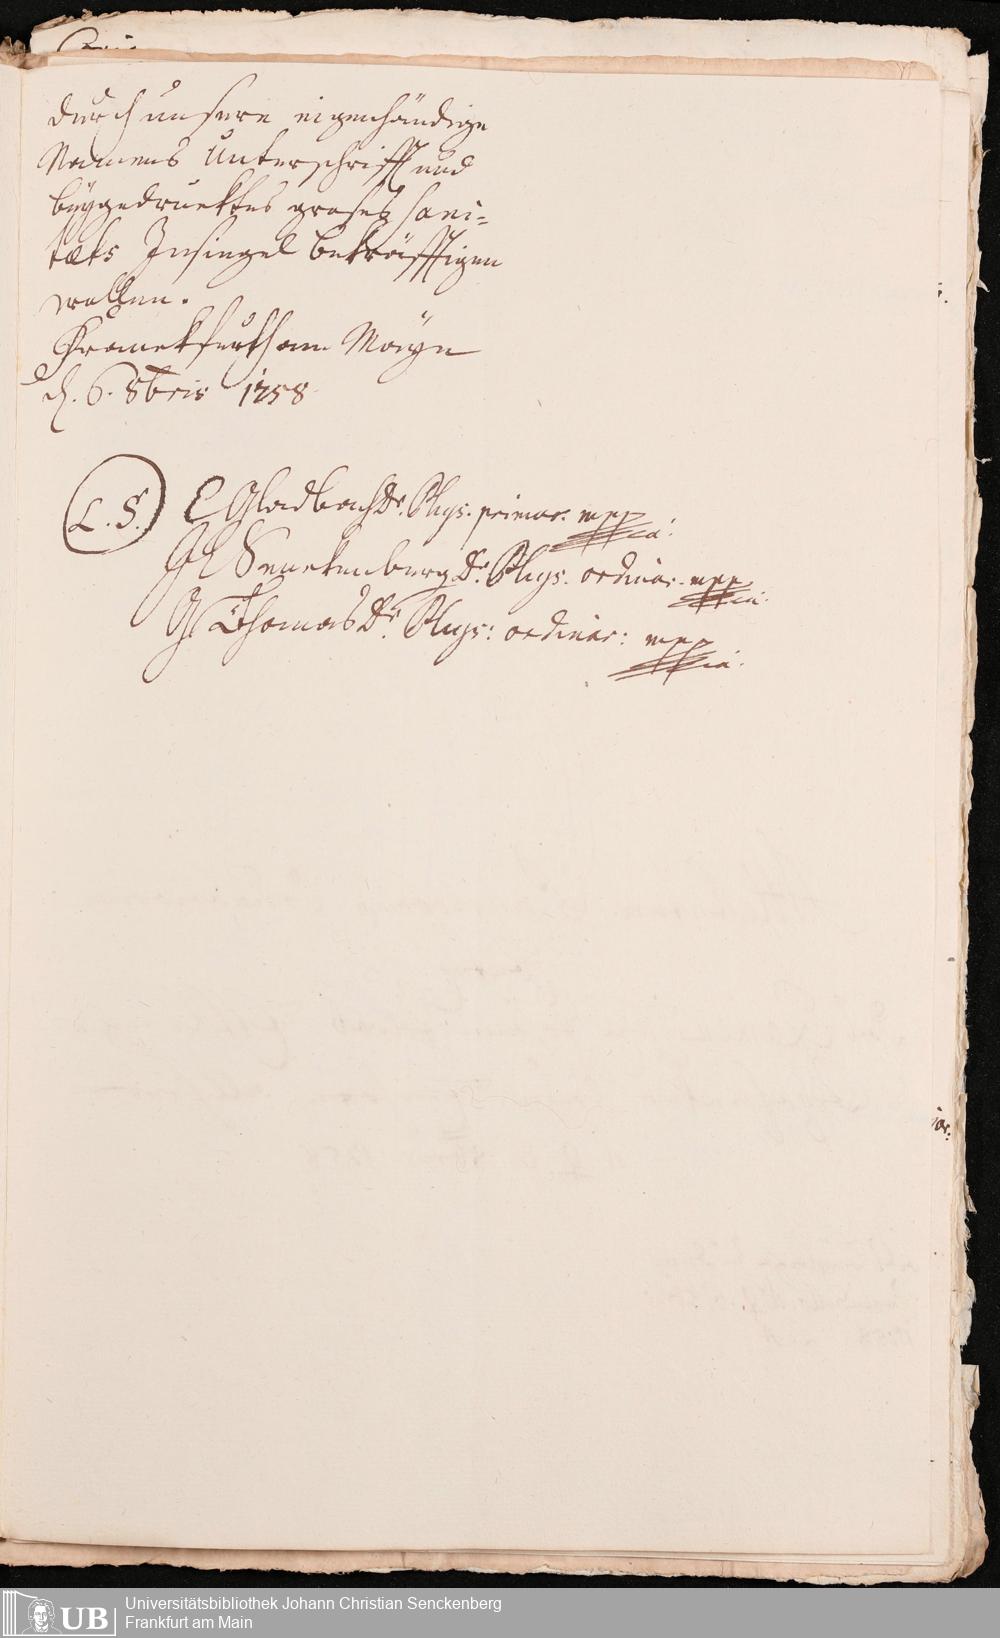 durch unsere eigenhändige
Namens Unterschrifft und
beygedrucktes groses Sani-
tæts Insiegel bekräfftigen
wollen.
Franckfurth am Mayn
d. 6. 8bris 1758
L. S. C Gladbach Dr. Phys. primar. mppria.
JC Senckenberg Dr. Phys. ordinar. mppria.
G Thomas Dr. Phys: ordinar: mppria.
UB
Universitätsbibliothek Johann Christian Senckenberg
Frankfurt am Main